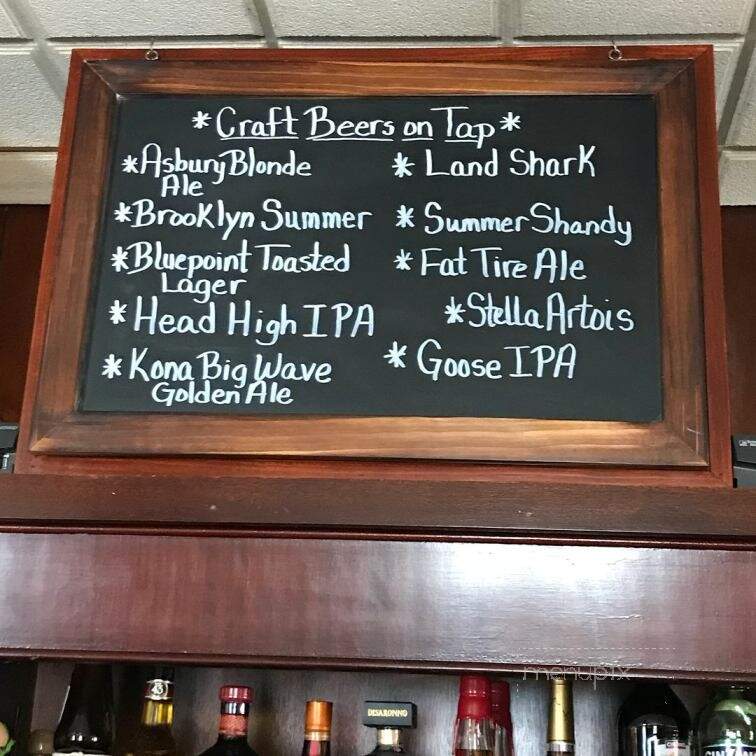 *Craft Beers on Tap*
*Asbury Blonde
Ale
*Brooklyn Summer
*Bluepoint Toasted
Lager
*Head High IPA
*Kona Big Wave
Golden Ale
*Land Shark
*Summer Shandy
*Fat Tire Ale
*Stella Artois
*Goose IPA
menupix
43
DISARONNO